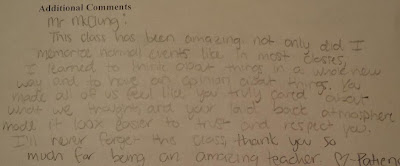 Additional Comments
Mr McClung:
This class has been amazing not only did I
memorize normal events like in most classes,
I learned to think about things in a whole new
way and to have an opinion about things. You
made all of us feel like you truly cared about
what we thought and your laid back atmosphere
made it look easier to trust and respect you.
I'll never forget this class, thank you so
much for being an amazing teacher